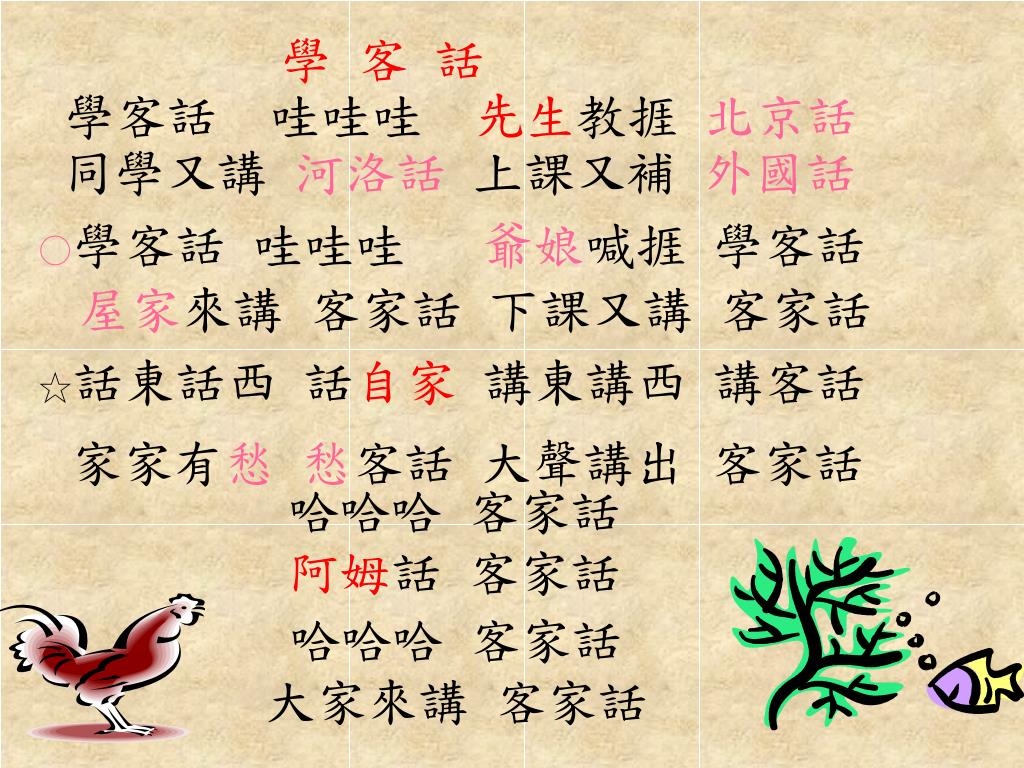 學 客 話
學客話 哇哇哇 先生教捱 北京話
同學又講 河洛話 上課又補 外國話
○學客話 哇哇哇 爺娘喊捱 學客話
屋家來講 客家話 下課又講 客家話
☆話東話西 話自家 講東講西 講客話
家家有愁 愁客話 大聲講出 客家話
哈哈哈 客家話
阿姆話 客家話
哈哈哈 客家話
大家來講 客家話